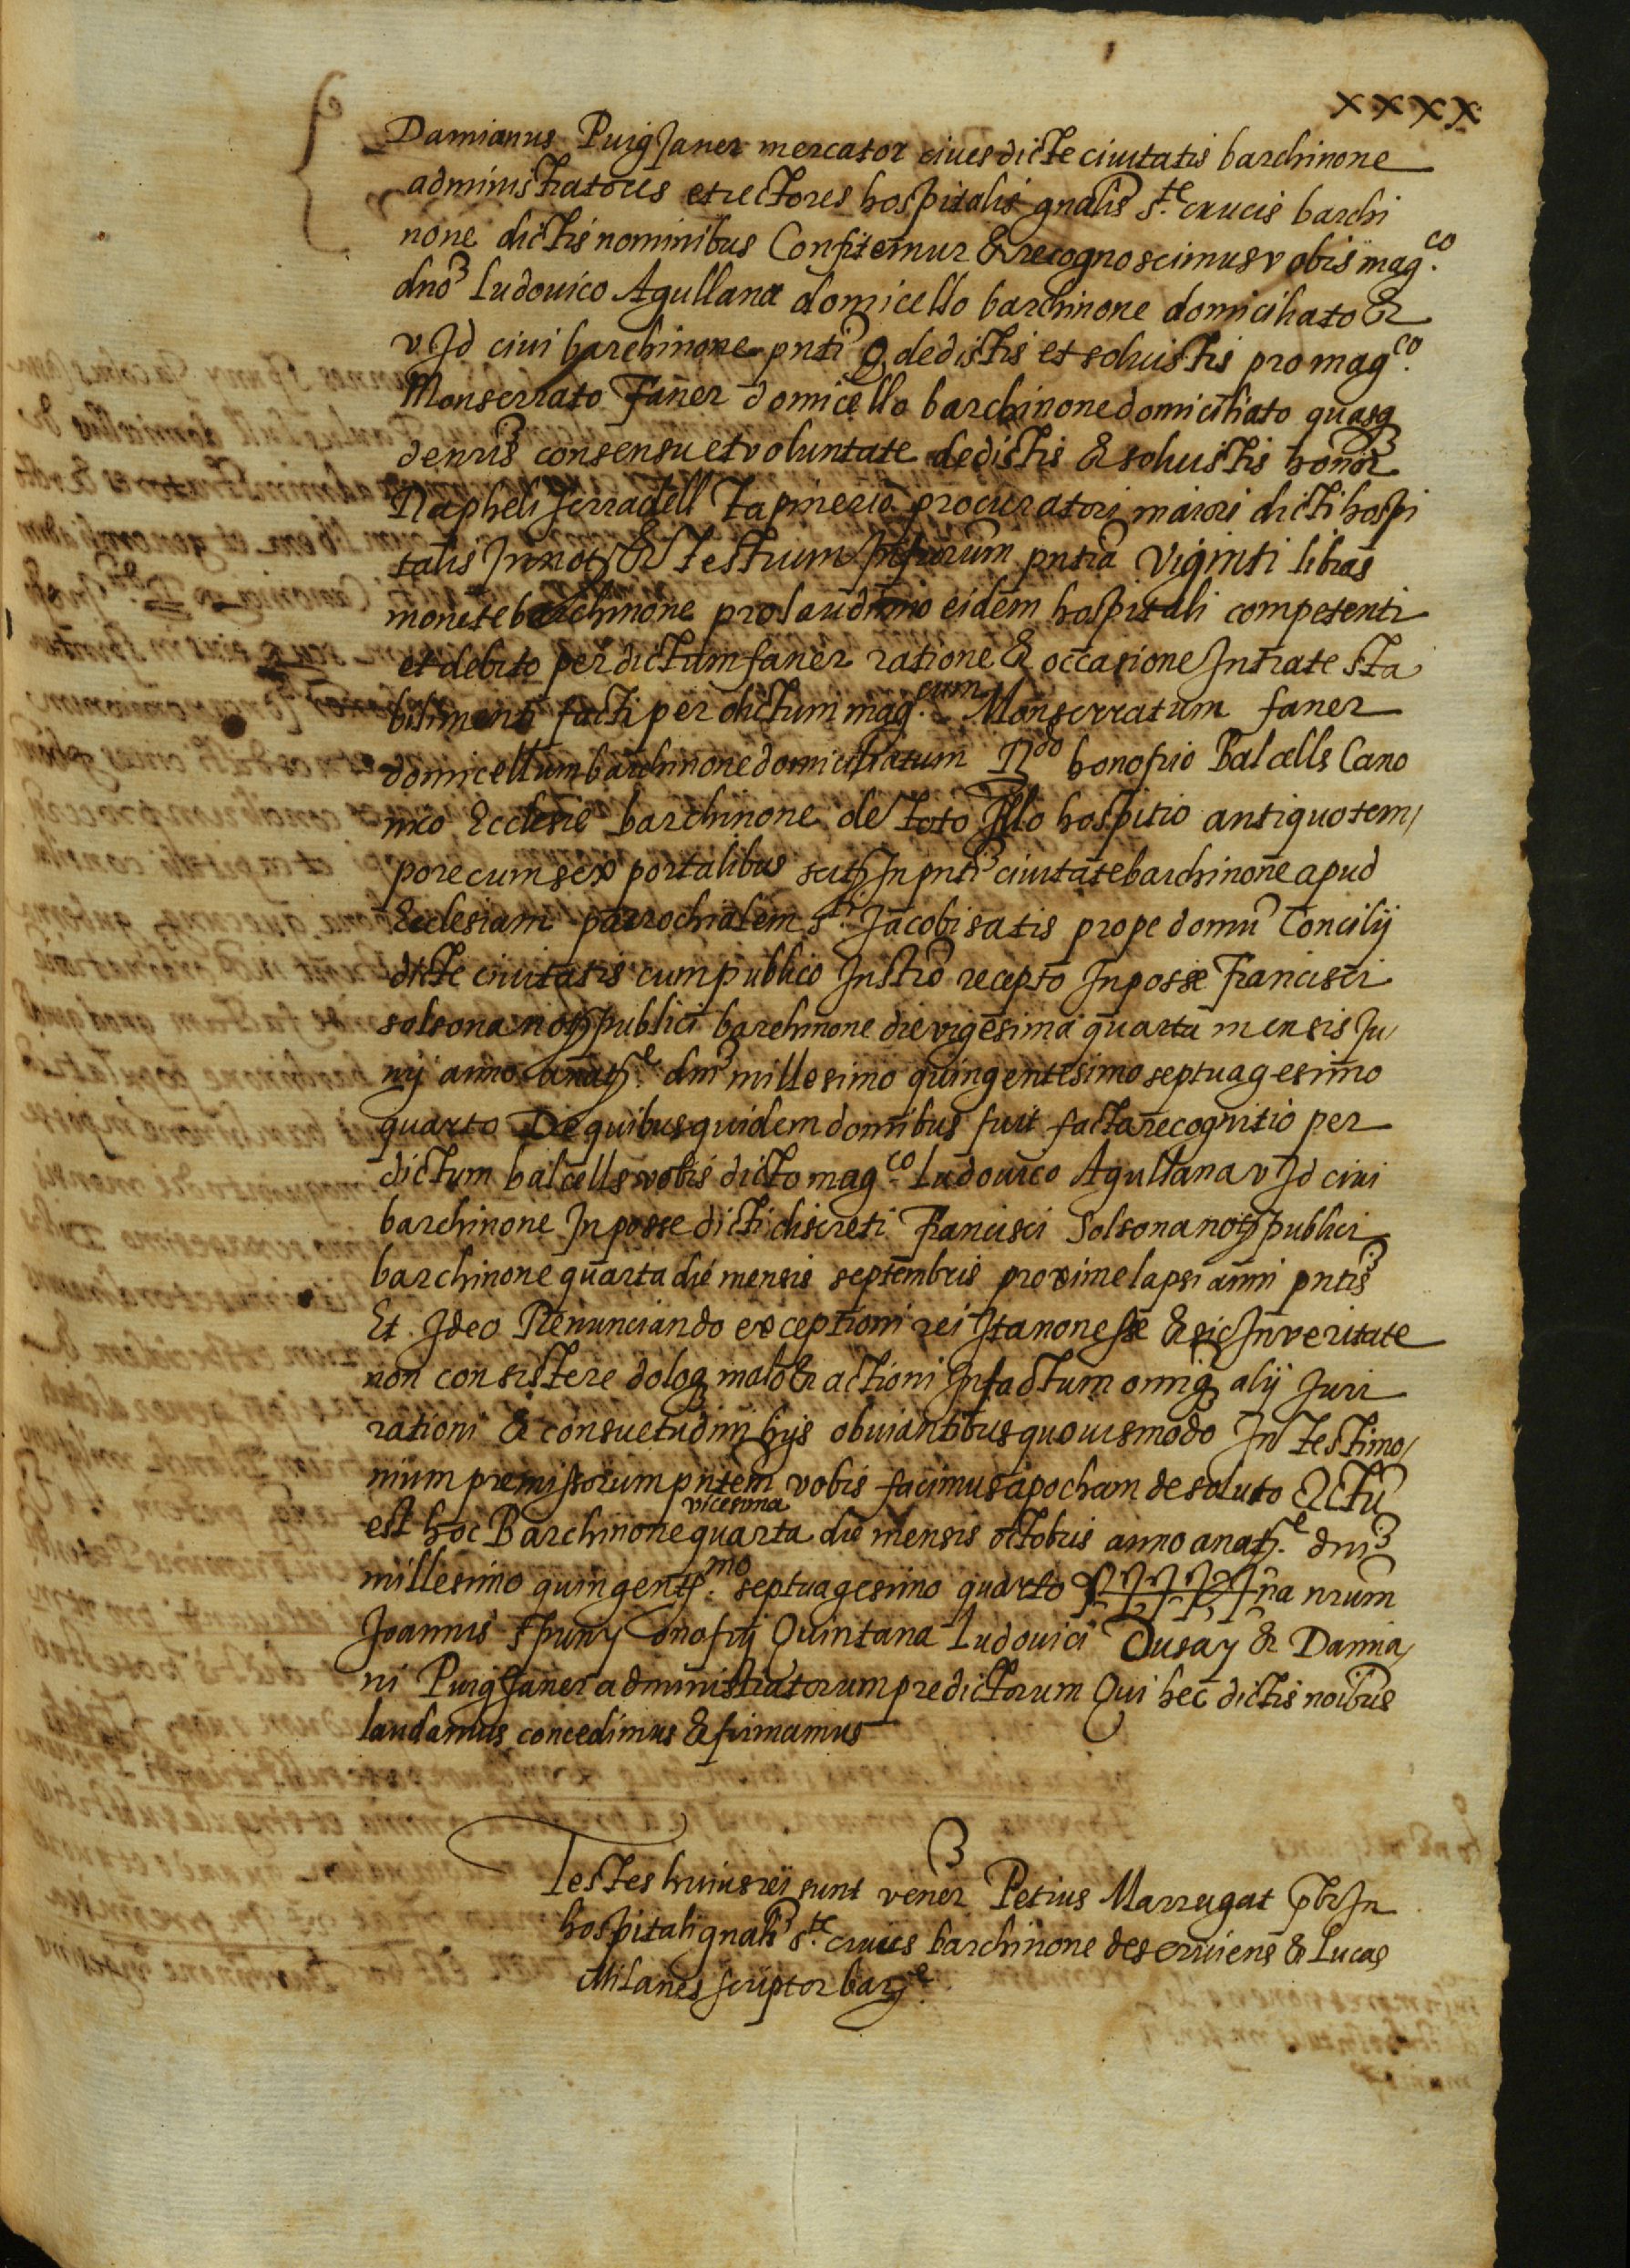 xxxx
Damianus PuigJaner mercator ciues dicte ciuitatis barchinone
administratores et rectores hospitalis gnalis s.te crucis barchi
none dictis nominibus Confitemur & recognoscimus vobis mag.co
dno Ludouico Agullana domicello barchinone domiciliato &
v Jd ciui barchinone pnti q dedistis et soluistis pro mag.co
Monserrato Faner domicello barchinone domiciliato quasq
de nris consensu et voluntate dedistis & soluistis honor
Rapheli serradell Tapinerio procuratori maiori dicti hospi
talis Jn not & testium pntia Viginti libras
monete barchinone pro laudimio eidem hospitali competenti
et debito per dictum faner ratione & occasione Intrate sta
bilimenti facti per dictum mag.cum Monserratum faner
domicellum barchinone domiciliatum Rdo honofrio Balcells Cano
nico Ecclesie barchinone de toto Illo hospitio antiquo tem/
pore cum sex portalibus scit In pnti ciuitate barchinone apud
Ecclesiam parrochialem s.ti Jacobi satis prope domu Concilij
dicte ciuitatis cum publico Instro recepto In posse Francisci
solsona not publici barchinone die vigesima quarta mensis Ju/
nij anno a nat.e dni millesimo quingentesimo septuagesimo
quarto De quibus quidem domibus fuit facta recognitio per
dictum balcells vobis dicto mag.co Ludouico Agullana v Jd ciui
barchinone In posse dicti discreti Francisci Solsona not publici
barchinone quarta die mensis septembris proxime lapsi anni pntis
Et Ideo Renunciando exceptioni rei Ita non esse & sic In veritate
non consistere doloq malo & actioni In factum omniq alij Juri
rationi & consuetudini hijs obuiantibus quouismodo In testimo/
nium premissorum pntem vobis facimus apocham de soluto Actu
est hoc Barchinone vicesima quarta die mensis octobris anno a nat.e dni
millesimo quingent.mo septuagesimo quarto na nrum
Joannis spuny onofrij Quintana Ludouici Dusay & Damia/
ni PuigJaner administratorum predictorum Qui hec dictis noibus
laudamus concedimus & firmamus
Testes huius rei sunt vener Petrus Marrugat pbr In
hospitali gnali s.te crucis barchinone deseruiens & Lucas
Milanes scriptor bar.e